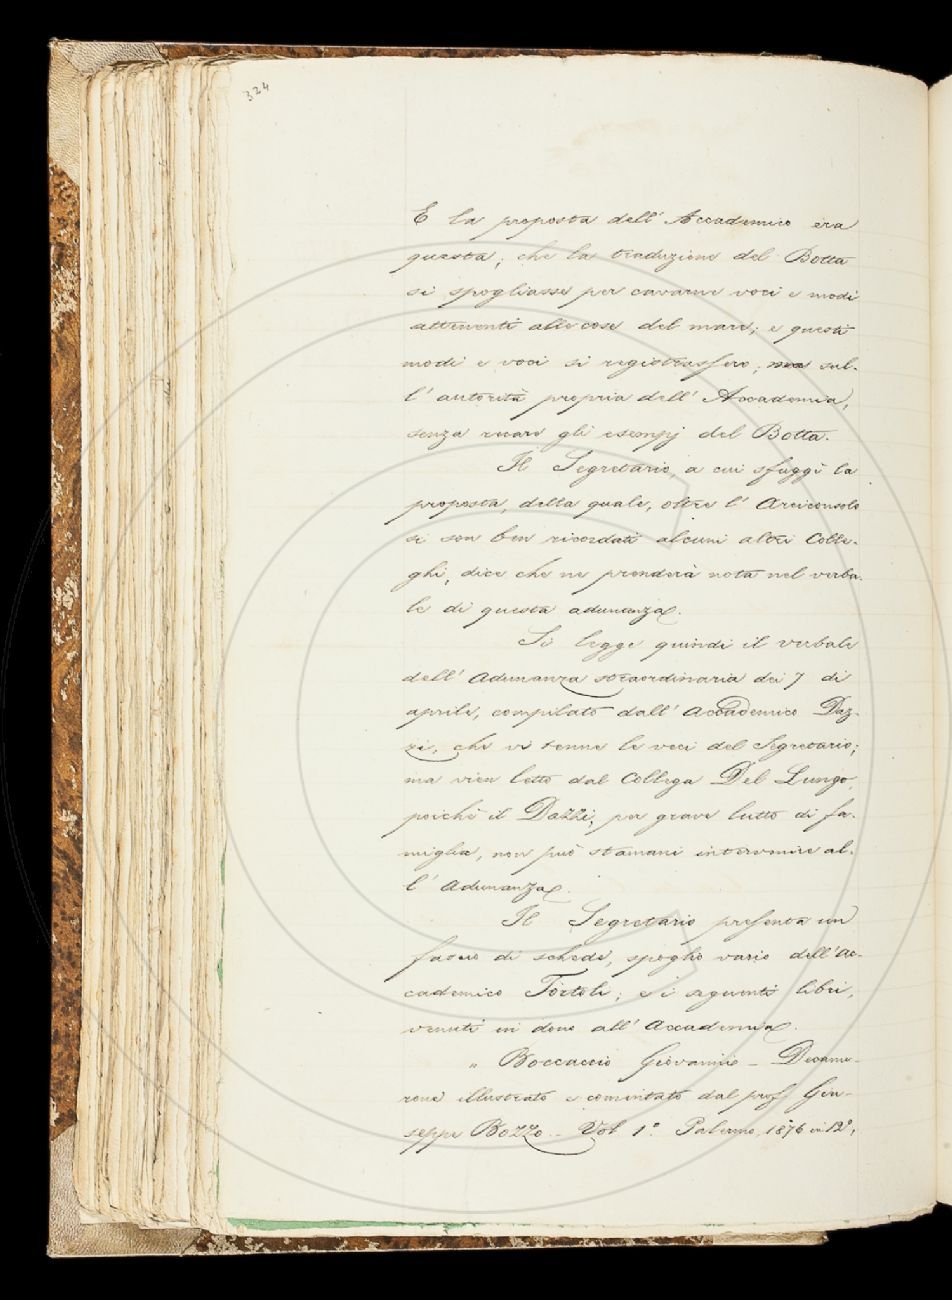 324
E la proposta dell' Accademico era
questa; che la traduzione del Botta
si spogliasse per cavarne voci e modi
attenenti alle cose del mare; e questi
modi e voci si registrassero; ma sul-
l' autorità propria dell' Accademia,
senza recare gli esempj del Botta.
Il Segretario, a cui sfuggì la
proposta, della quale, oltre l' Arciconsolo
si son ben ricordati alcuni altri Colle-
ghi, dice che ne prenderà nota nel verba
le di questa adunanza.
Si legge quindi il verbale
dell' Adunanza straordinaria dei 7 di
aprile, compilato dall' Accademico Daz-
zi, che vi tenne le veci del Segretario;
ma vien letto dal Collega Del Lungo,
poichè il Dazzi, per grave lutto di fa-
miglia, non può stamani intervenire al-
l' Adunanza.
Il Segretario presenta un
fascio di schede, spoglio vario dell' Ac-
cademico Tortoli; e i seguenti libri,
venuti in dono all' Accademia.
" Boccaccio Giovanni – Decame-
rone illustrato e comentato dal prof. Giu-
seppe Bozzo – Vol 1.° Palermo, 1876 in 12°;